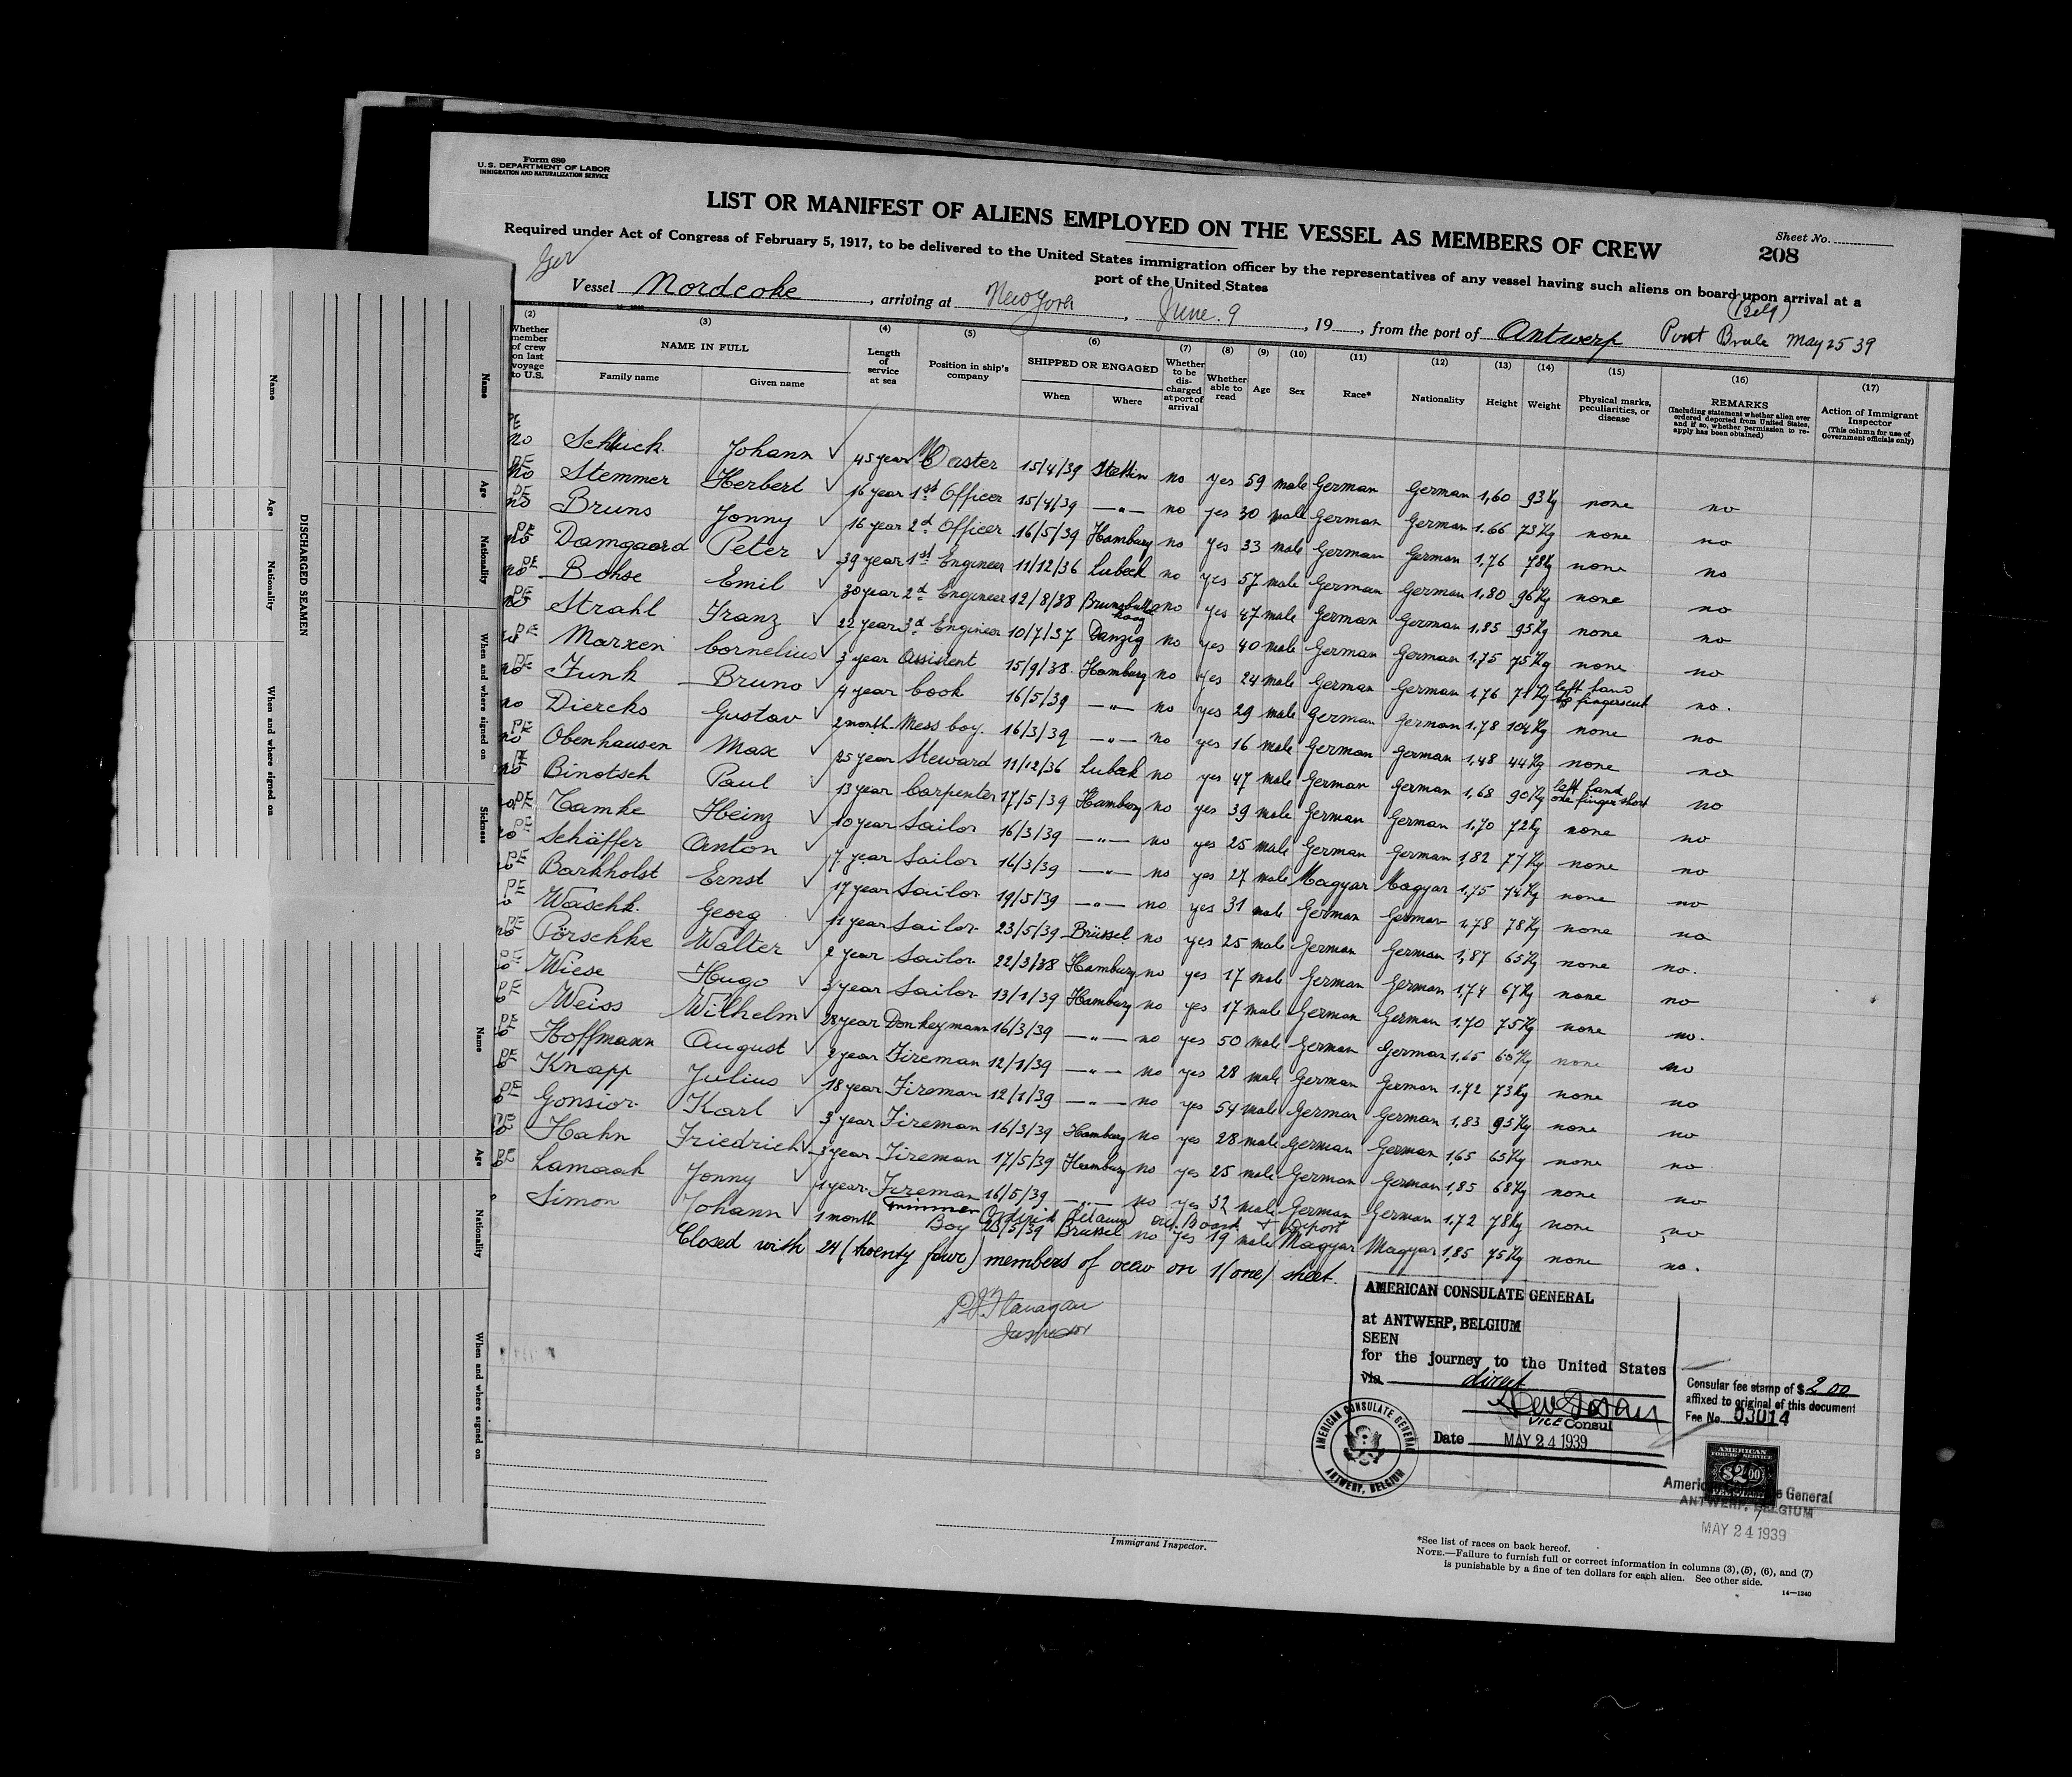 Form 680
U.S. DEPARTMENT OF LABOR
IMMIGRATION AND NATURALIZATION SERVICE
LIST OR MANIFEST OF ALIENS EMPLOYED ON THE VESSEL AS MEMBERS OF CREW
Sheet No.
208
Required under Act of Congress of February 5, 1917, to be delivered to the United States immigration officer by the representatives of any vessel having such aliens on board upon arrival at a
port of the United States
Ger
(Belg)
Vessel Nordcoke, arriving at New York, June 9, 19, from the port of Antwerp May 25 39
(2) Whether member of crew on last voyage to U.S.
(3) NAME IN FULL Family name Given name
(4) Length of service at sea
(5) Position in ship's company
(6) SHIPPED OR ENGAGED When Where
(7) Whether to be discharged at port of arrival
(8) Whether able to read
(9) Age
(10) Sex
(11) Race*
(12) Nationality
(13) Height
(14) Weight
(15) Physical marks, peculiarities, or disease
(16) REMARKS (Including statement whether alien ever ordered deported from United States, and if so, whether permission to re-apply has been obtained)
(17) Action of Immigrant Inspector (This column for use of Government officials only)
no Schluck Johann 45 year Master 15/4/39 Stettin no yes 59 male German German 1,60 93 Kg none no
no Stemmer Herbert 16 year 1st Officer 15/4/39 —"— no yes 30 male German German 1.66 73 Kg none no
no Bruns Jonny 16 year 2d Officer 16/5/39 Hamburg no yes 33 male German German 1,76 78 Kg none no
no Damgaard Peter 39 year 1st Engineer 11/12/36 Lubeck no yes 57 male German German 1,80 96 Kg none no
no Bohse Emil 30 year 2d Engineer 12/8/38 Brunsbüttelkoog no yes 47 male German German 1,85 95 Kg none no
no Strahl Franz 22 year 3d Engineer 10/7/37 Danzig no yes 40 male German German 1,75 75 Kg none no
no Marxen Cornelius 3 year Assistent 15/9/38 Hamburg no yes 24 male German German 1,76 71 Kg left hand fingers cut no.
no Funk Bruno 4 year Cook 16/5/39 —"— no yes 29 male German German 1,78 104 Kg none no
no Diercks Gustav 2 month Mess boy. 16/3/39 —"— no yes 16 male German German 1,48 44 Kg none no
no Obenhausen Max 25 year Steward 11/12/36 Lubeck no yes 47 male German German 1,68 90 Kg left hand one finger short no
no Binotsch Paul 13 year Carpenter 17/5/39 Hamburg no yes 39 male German German 1,70 72 Kg none no
no Tamke Heinz 10 year Sailor 16/3/39 —"— no yes 25 male German German 1,82 77 Kg none no
no Schäffer Anton 7 year Sailor 16/3/39 —"— no yes 27 male Magyar Magyar 1,75 74 Kg none no
no Barkholst Ernst 17 year Sailor 19/5/39 —"— no yes 31 male German German 1,78 78 Kg none no
Waschk. Georg 11 year Sailor 23/5/39 Brüssel no yes 25 male German German 1,87 65 Kg none no.
no Pörschke Walter 2 year Sailor 22/3/38 Hamburg no yes 17 male German German 1,74 67 Kg none no
Wiese Hugo 3 year Sailor 13/1/39 Hamburg no yes 17 male German German 1,70 75 Kg none no.
Weiss Wilhelm 28 year Donkeymann 16/3/39 —"— no yes 50 male German German 1,65 60 Kg none no
Hoffmann August 2 year Fireman 12/1/39 —"— no yes 28 male German German 1.72 73 Kg none no
Knapp Julius 18 year Fireman 12/1/39 —"— no yes 54 male German German 1,83 95 Kg none no
Gonsior Karl 3 year Fireman 16/3/39 Hamburg no yes 28 male German German 1,65 65 Kg none no
Hahn Friedrich 3 year Fireman 17/5/39 Hamburg no yes 25 male German German 1,85 68 Kg none no
Lamaak Jonny 1 year Fireman Trimmer 16/5/39 —"— no yes 32 male German German 1.72 78 Kg none no
Ordered Detain on Board & Deport
Simon Johann 1 month Boy 23/5/39 Brüssel no yes 19 male Magyar Magyar 1,85 75 Kg none no.
Closed with 24 (twenty four) members of crew on 1 (one) sheet.
P.J. Flanagan
Inspector
AMERICAN CONSULATE GENERAL
at ANTWERP, BELGIUM
SEEN
for the journey to the United States
via direct
VICE Consul
Date MAY 24 1939
AMERICAN CONSULATE GENERAL ANTWERP, BELGIUM
Consular fee stamp of $2.00
affixed to original of this document
Fee No. 03014
AMERICAN
FOREIGN SERVICE
$2.00
American Consulate General
ANTWERP, BELGIUM
MAY 24 1939
Immigrant Inspector.
*See list of races on back hereof.
NOTE.—Failure to furnish full or correct information in columns (3), (5), (6), and (7)
is punishable by a fine of ten dollars for each alien. See other side.
14—1240
DISCHARGED SEAMEN
Name Age Nationality When and where signed on
Name Age Nationality When and where signed on Sickness
Name Age Nationality When and where signed on